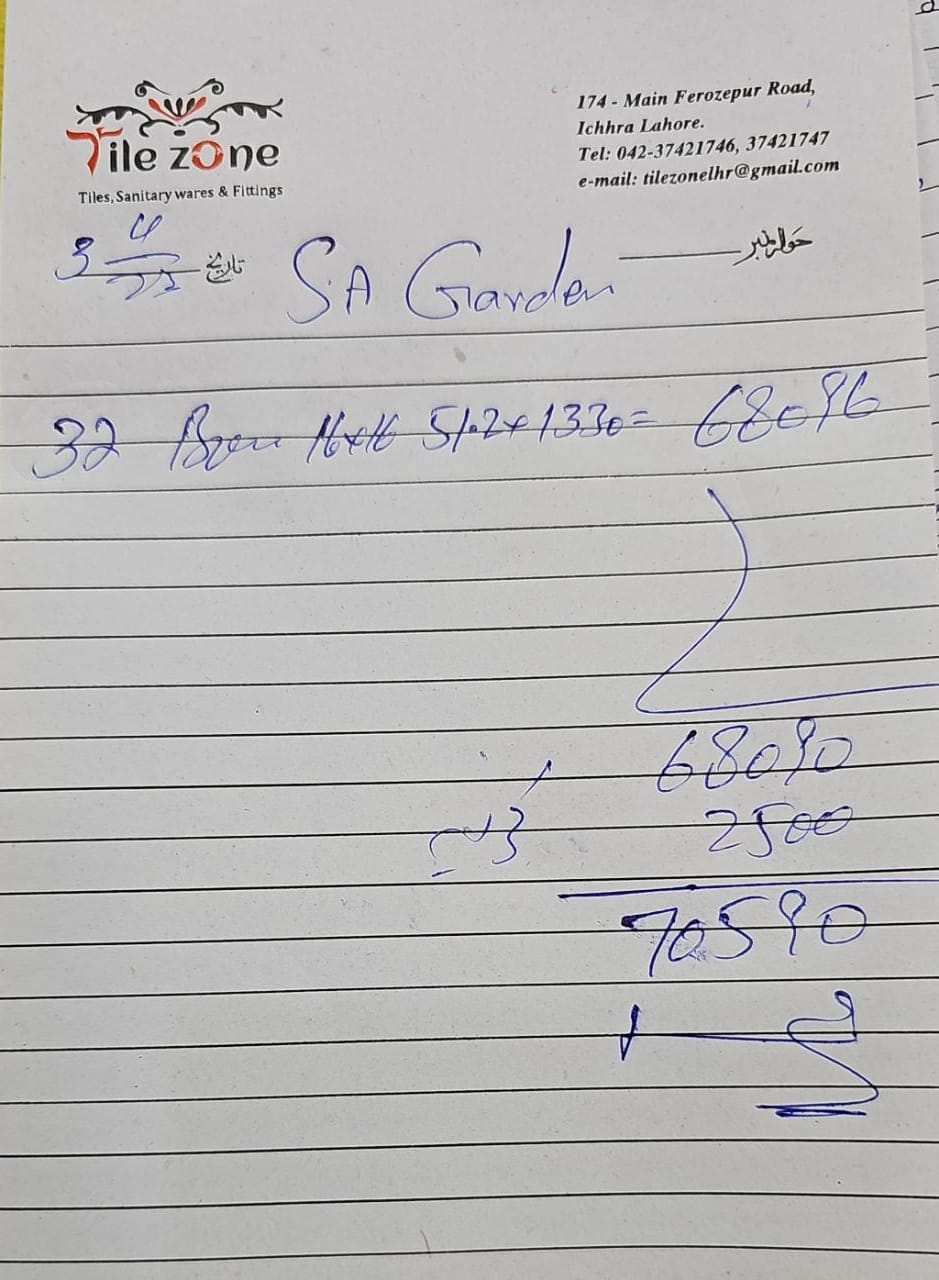 Tile zone
Tiles, Sanitary wares & Fittings
174 - Main Ferozepur Road,
Ichhra Lahore.
Tel: 042-37421746, 37421747
e-mail: tilezonelhr@gmail.com
3 4/23 تاریخ
حوالہ نمبر
SA Garden
32 16x16 51.2x1330= 68096
68090
2500
70590